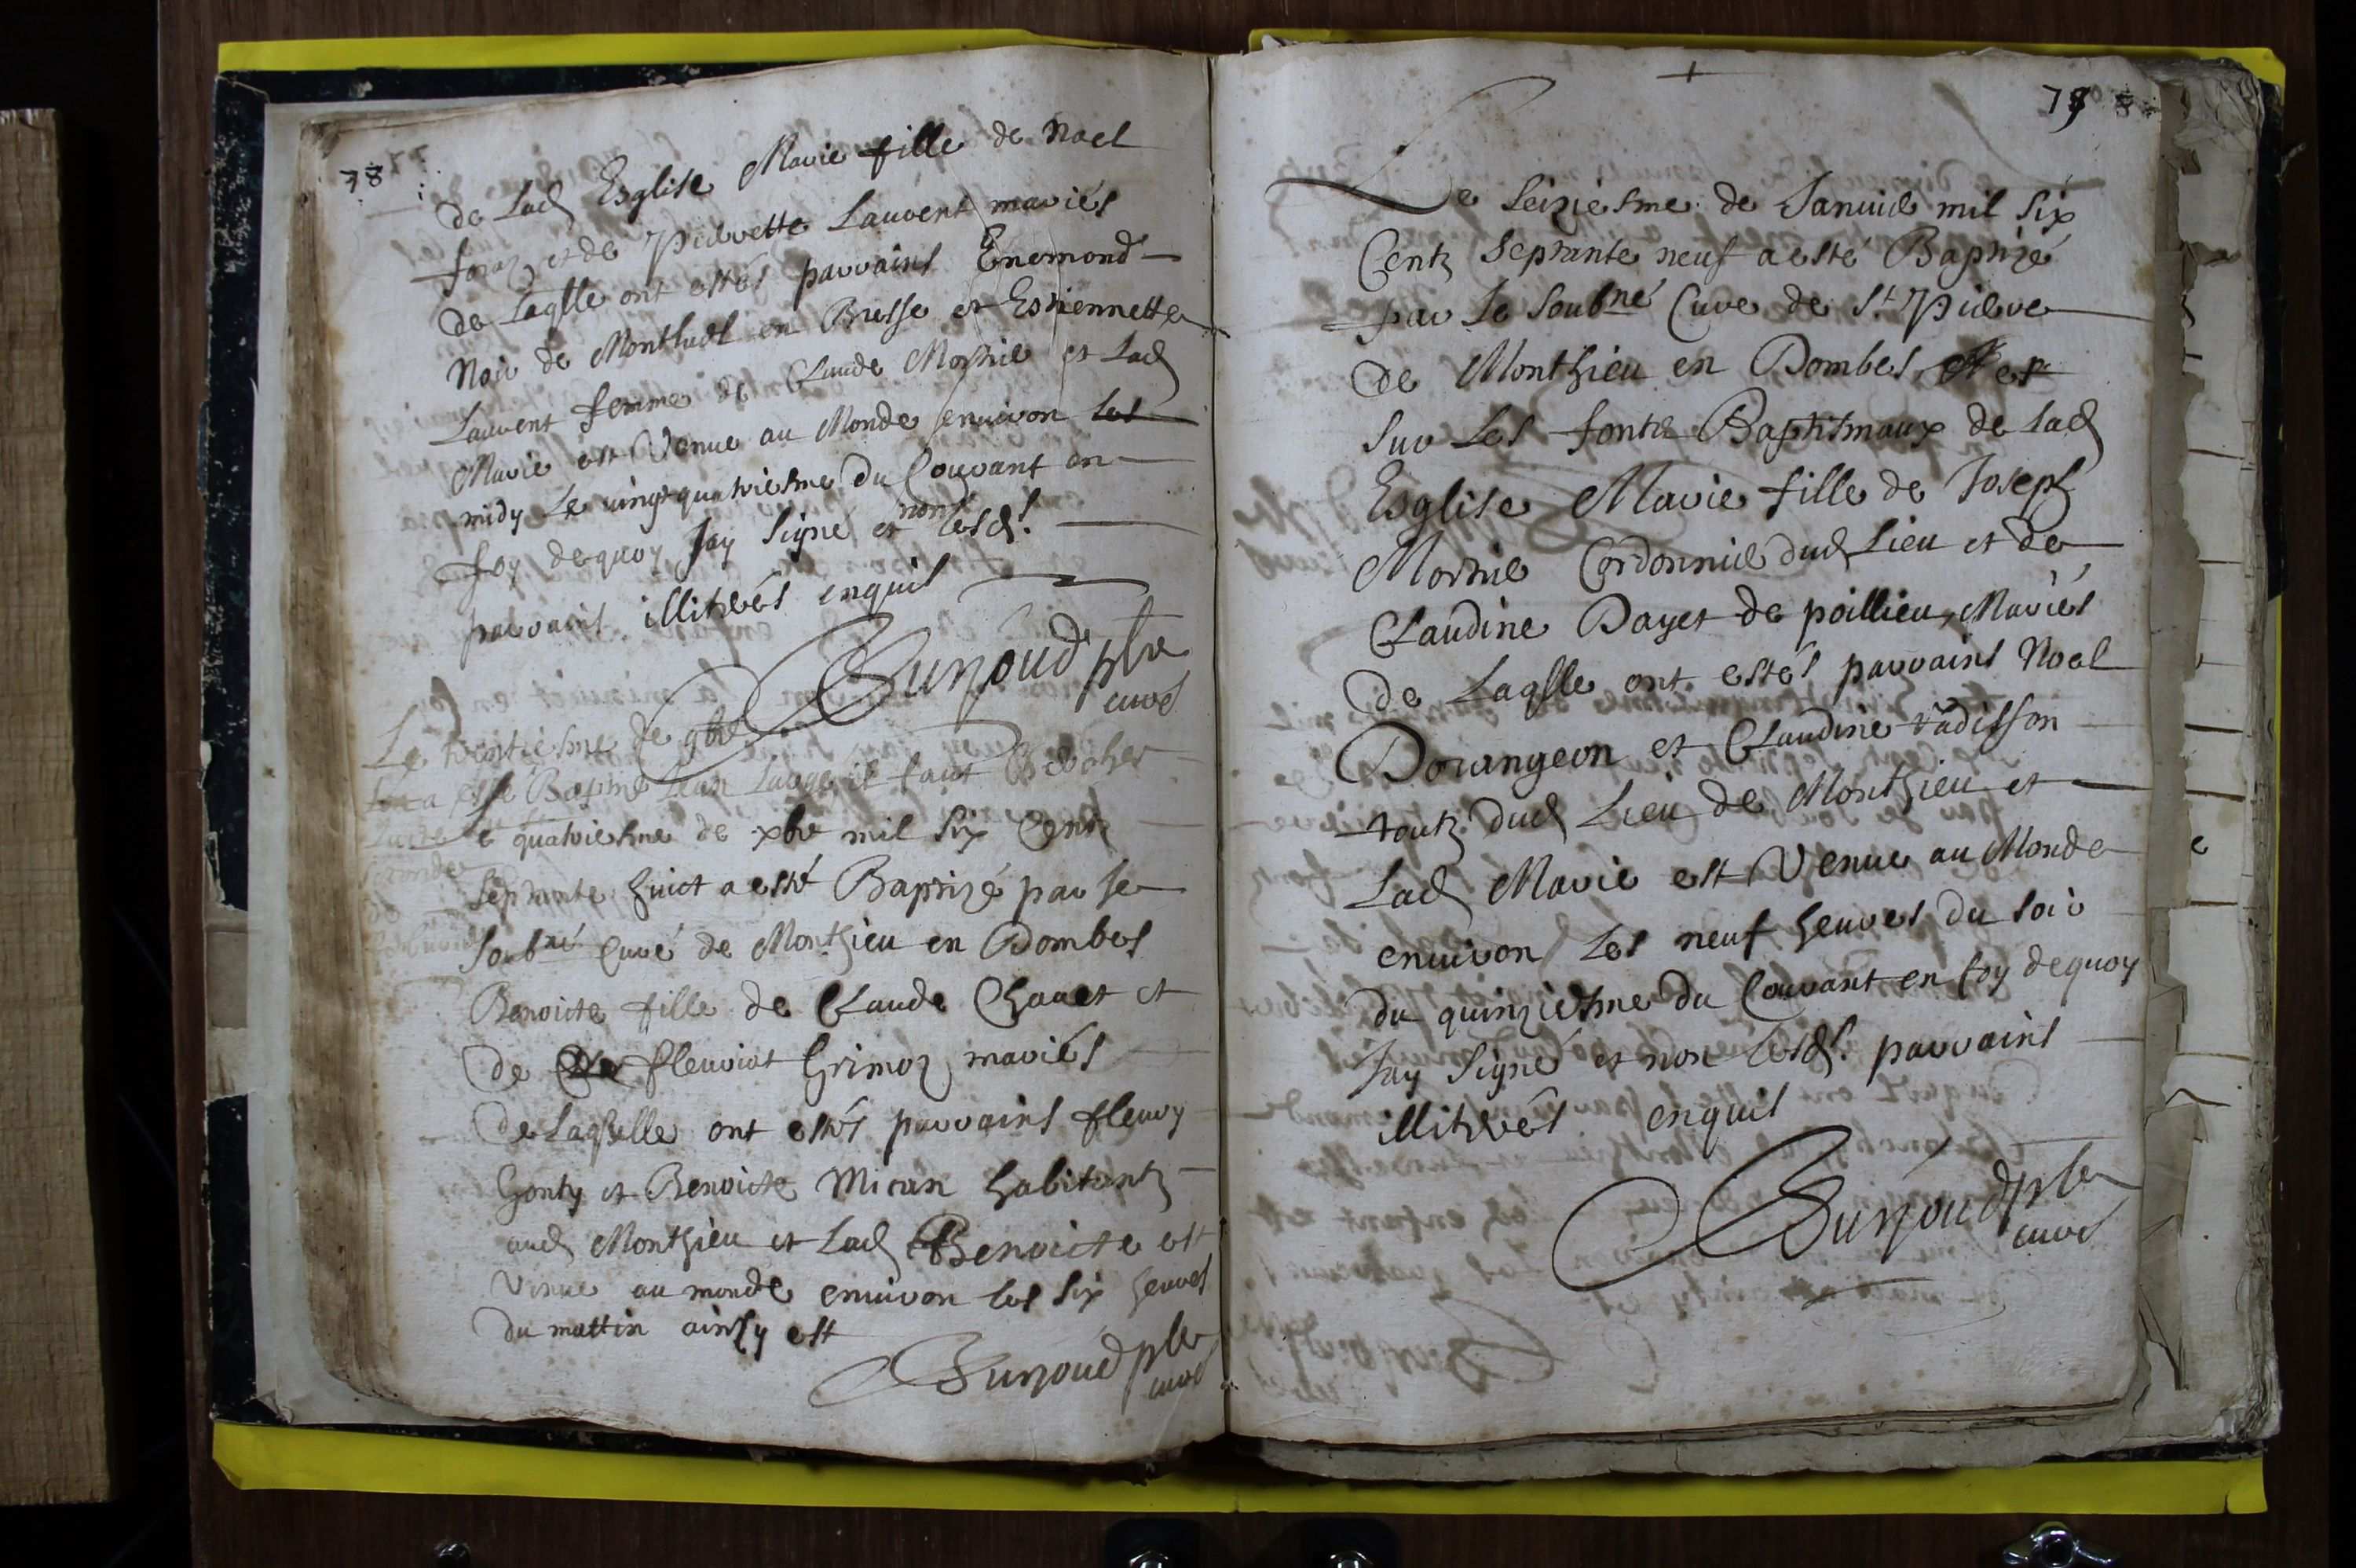 78
de Lad Esglise Marie fille de Noel
foraz et de Pierrette Laurent mariés
de Laqlle ont estés parrains Enemond
Noir de Montluel en Bresse et Estiennette
Laurent femme de Claude Mornie et Lad
Marie est Venue au Monde environ les
midy Le vingt quatriesme du Courant en
foy dequoy Jay signé et non lesds.
parrains illitrés enquis
Bunoud pbre
curé
Le trentiesme de 9bre
a esté Baptisé Jean il faut chercher
e quatriesme de xbre mil six Centz
septante huict a esté Baptizé par le
soubné Curé de Monthieu en Dombes
Benoicte fille de Claude Chanet et
de fleuriat Grimoz mariés
de Laqlle ont estés parrains fleury
Gonty et Benoicte Micran habitantz
aud Monthieu et Lad Benoicte est
Venue au monde environ les six heures
du mattin ainsy est
Bunoud pbre
curé
79
Le seiziesme de Janvie mil six
Centz septante neuf a esté Baptizé
par Le Soubné Cure de St. Pierre
de Monthieu en Dombes et
sur Les fontz Baptismaux de Lad
Esglise Marie fille de Joseph
Mornie Cordonnie dud Lieu et de
Claudine Dayet de poillieu Mariés
de Laqlle ont estés parrains Noel
Dourangeon et Claudine Vadisson
toutz dud Lieu de Monthieu et
Lad Marie est Venue au Monde
environ Les neuf heures du soir
du quinziesme du Courant en foy dequoy
Jay signé et non lesds. parrains
illitrés enquis
Bunoud pbre
curé